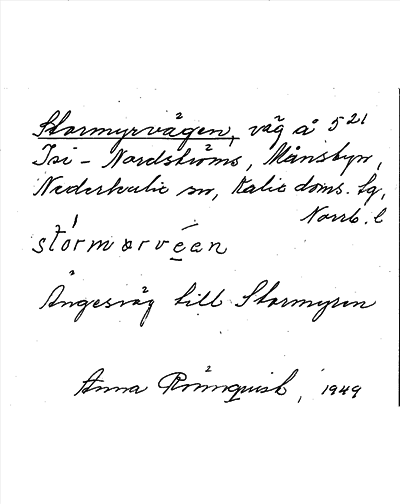 Stormyrvägen, väg å 5 21
Isi - Nordströms, Månsbyn,
Nederkalix sn, Kalix doms. lg,
Norrb. l
stórmorvéen
Ängesväg till Stormyren
Anna Rönnquist, 1949